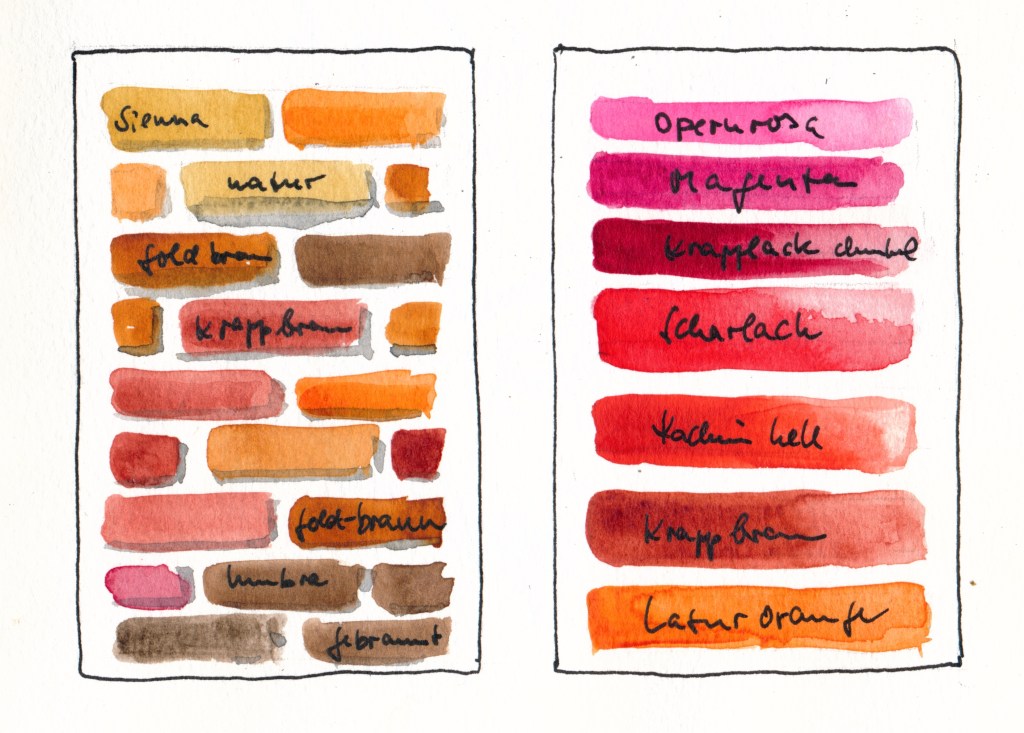 Sienna
natur
Goldbraun
Krappbraun
Gold-braun
Umbra
gebrannt
Opernrosa
Magenta
Krapplack dunkel
Scharlach
Karmin hell
Krappbraun
Lasurorange